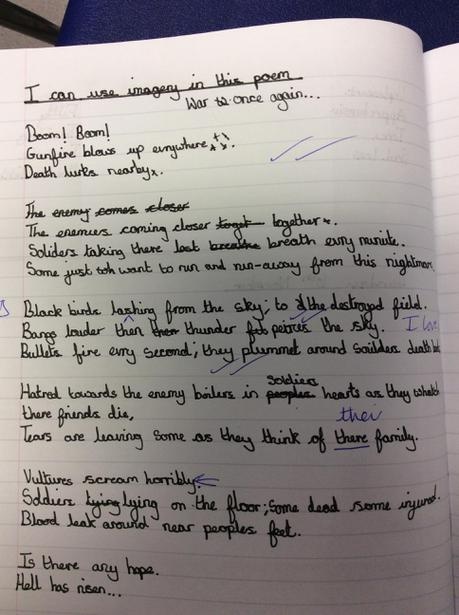 I can use imagery in this poem
War once again...
Boom! Boom!
Gunfire blows up everywhere
Death lurks nearby.
The enemy comes closer
The enemies coming closer together.
Soliders taking there last breath every minuite.
Some just want to run and run-away from this nightmare
Black birds lashing from the sky, to the destroyed field.
Bangs louder then thunder the sky. I lov
Bullets fire evry second; they plummet around death
Hatred towards the enemy boilers in soldiers hearts as they whatch
there friends die,
their
Tears are leaving some as they think of there family.
Vultures scream horribly.
Soldiers lying lying on the floor; some dead some injured.
Blood leak around near peoples feet.
Is there any hope.
Hell has risen...